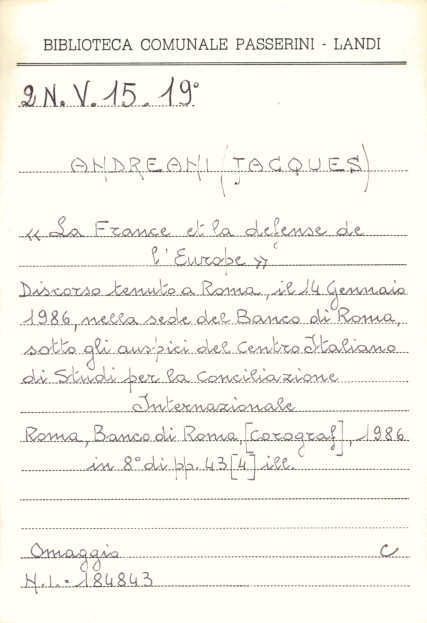 BIBLIOTECA COMUNALE PASSERINI - LANDI
2 N. V. 15. 19°
ANDREANI (JACQUES)
« La France et la defense de
l'Europe »
Discorso tenuto a Roma, il 14 Gennaio
1986, nella sede del Banco di Roma,
sotto gli auspici del Centro Italiano
di Studi per la Conciliazione
Internazionale
Roma, Banco di Roma, [Corograf], 1986
in 8° di pp. 43 [4] ill.
Omaggio C
N.I. = 184843